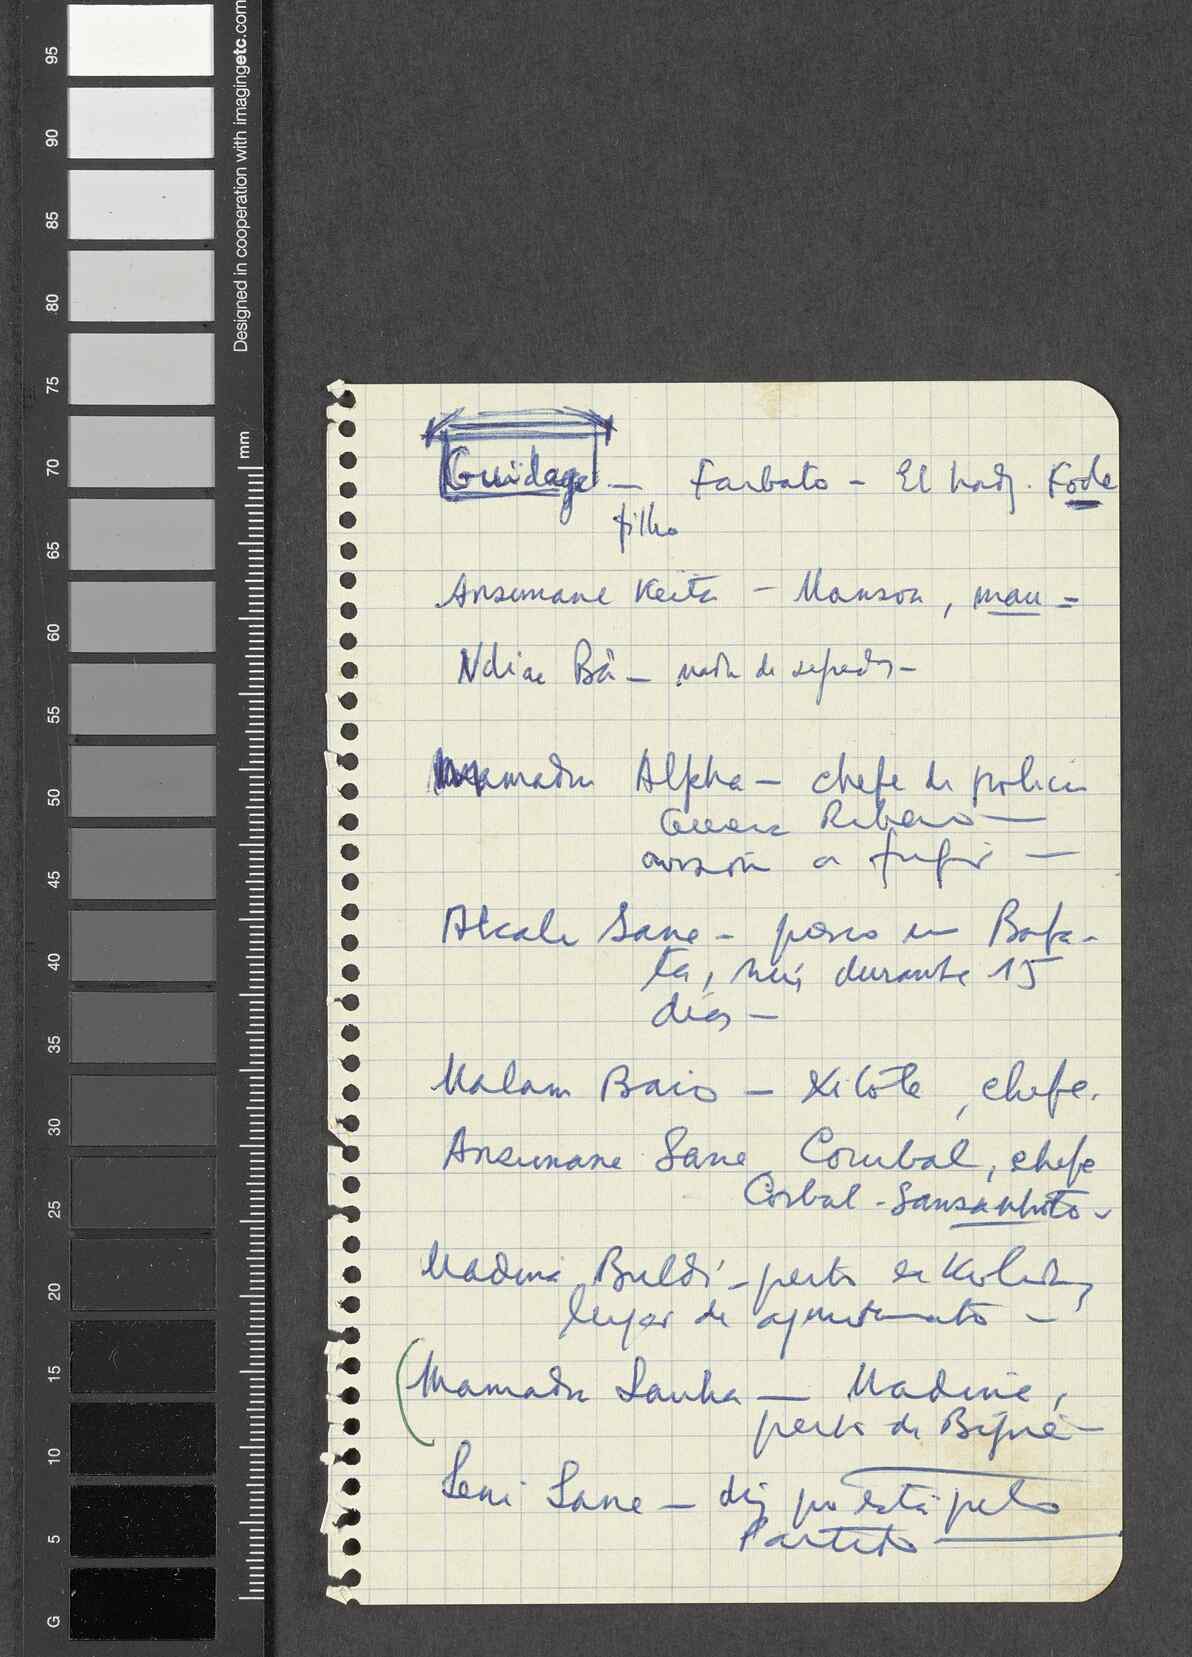 Guidage — Farbato - El hadj. Fode
filho
Ansumane Keita - Manson, mau -
Ndiae Bâ —
Mamadu Alpha — chefe de policia
Ribeiro —
a fugir —
Alcale Sane - preso em Bafa-
tá, durante 15
dias —
Malam Baio — Kilóte, chefe.
Ansumane Sane, Corubal, chefe
Corbal - Sansanhoto -
Madina Buldi - perto de
lugar de ajuntamento -
(Mamadu Sanha — Madina,
perto de Bigné —
Seni Sane — diz que está pelo
Partido —
95
90
85
80
75
70
65
60
55
50
45
40
35
30
25
20
15
10
5
G
Designed in cooperation with imagingetc.com
mm